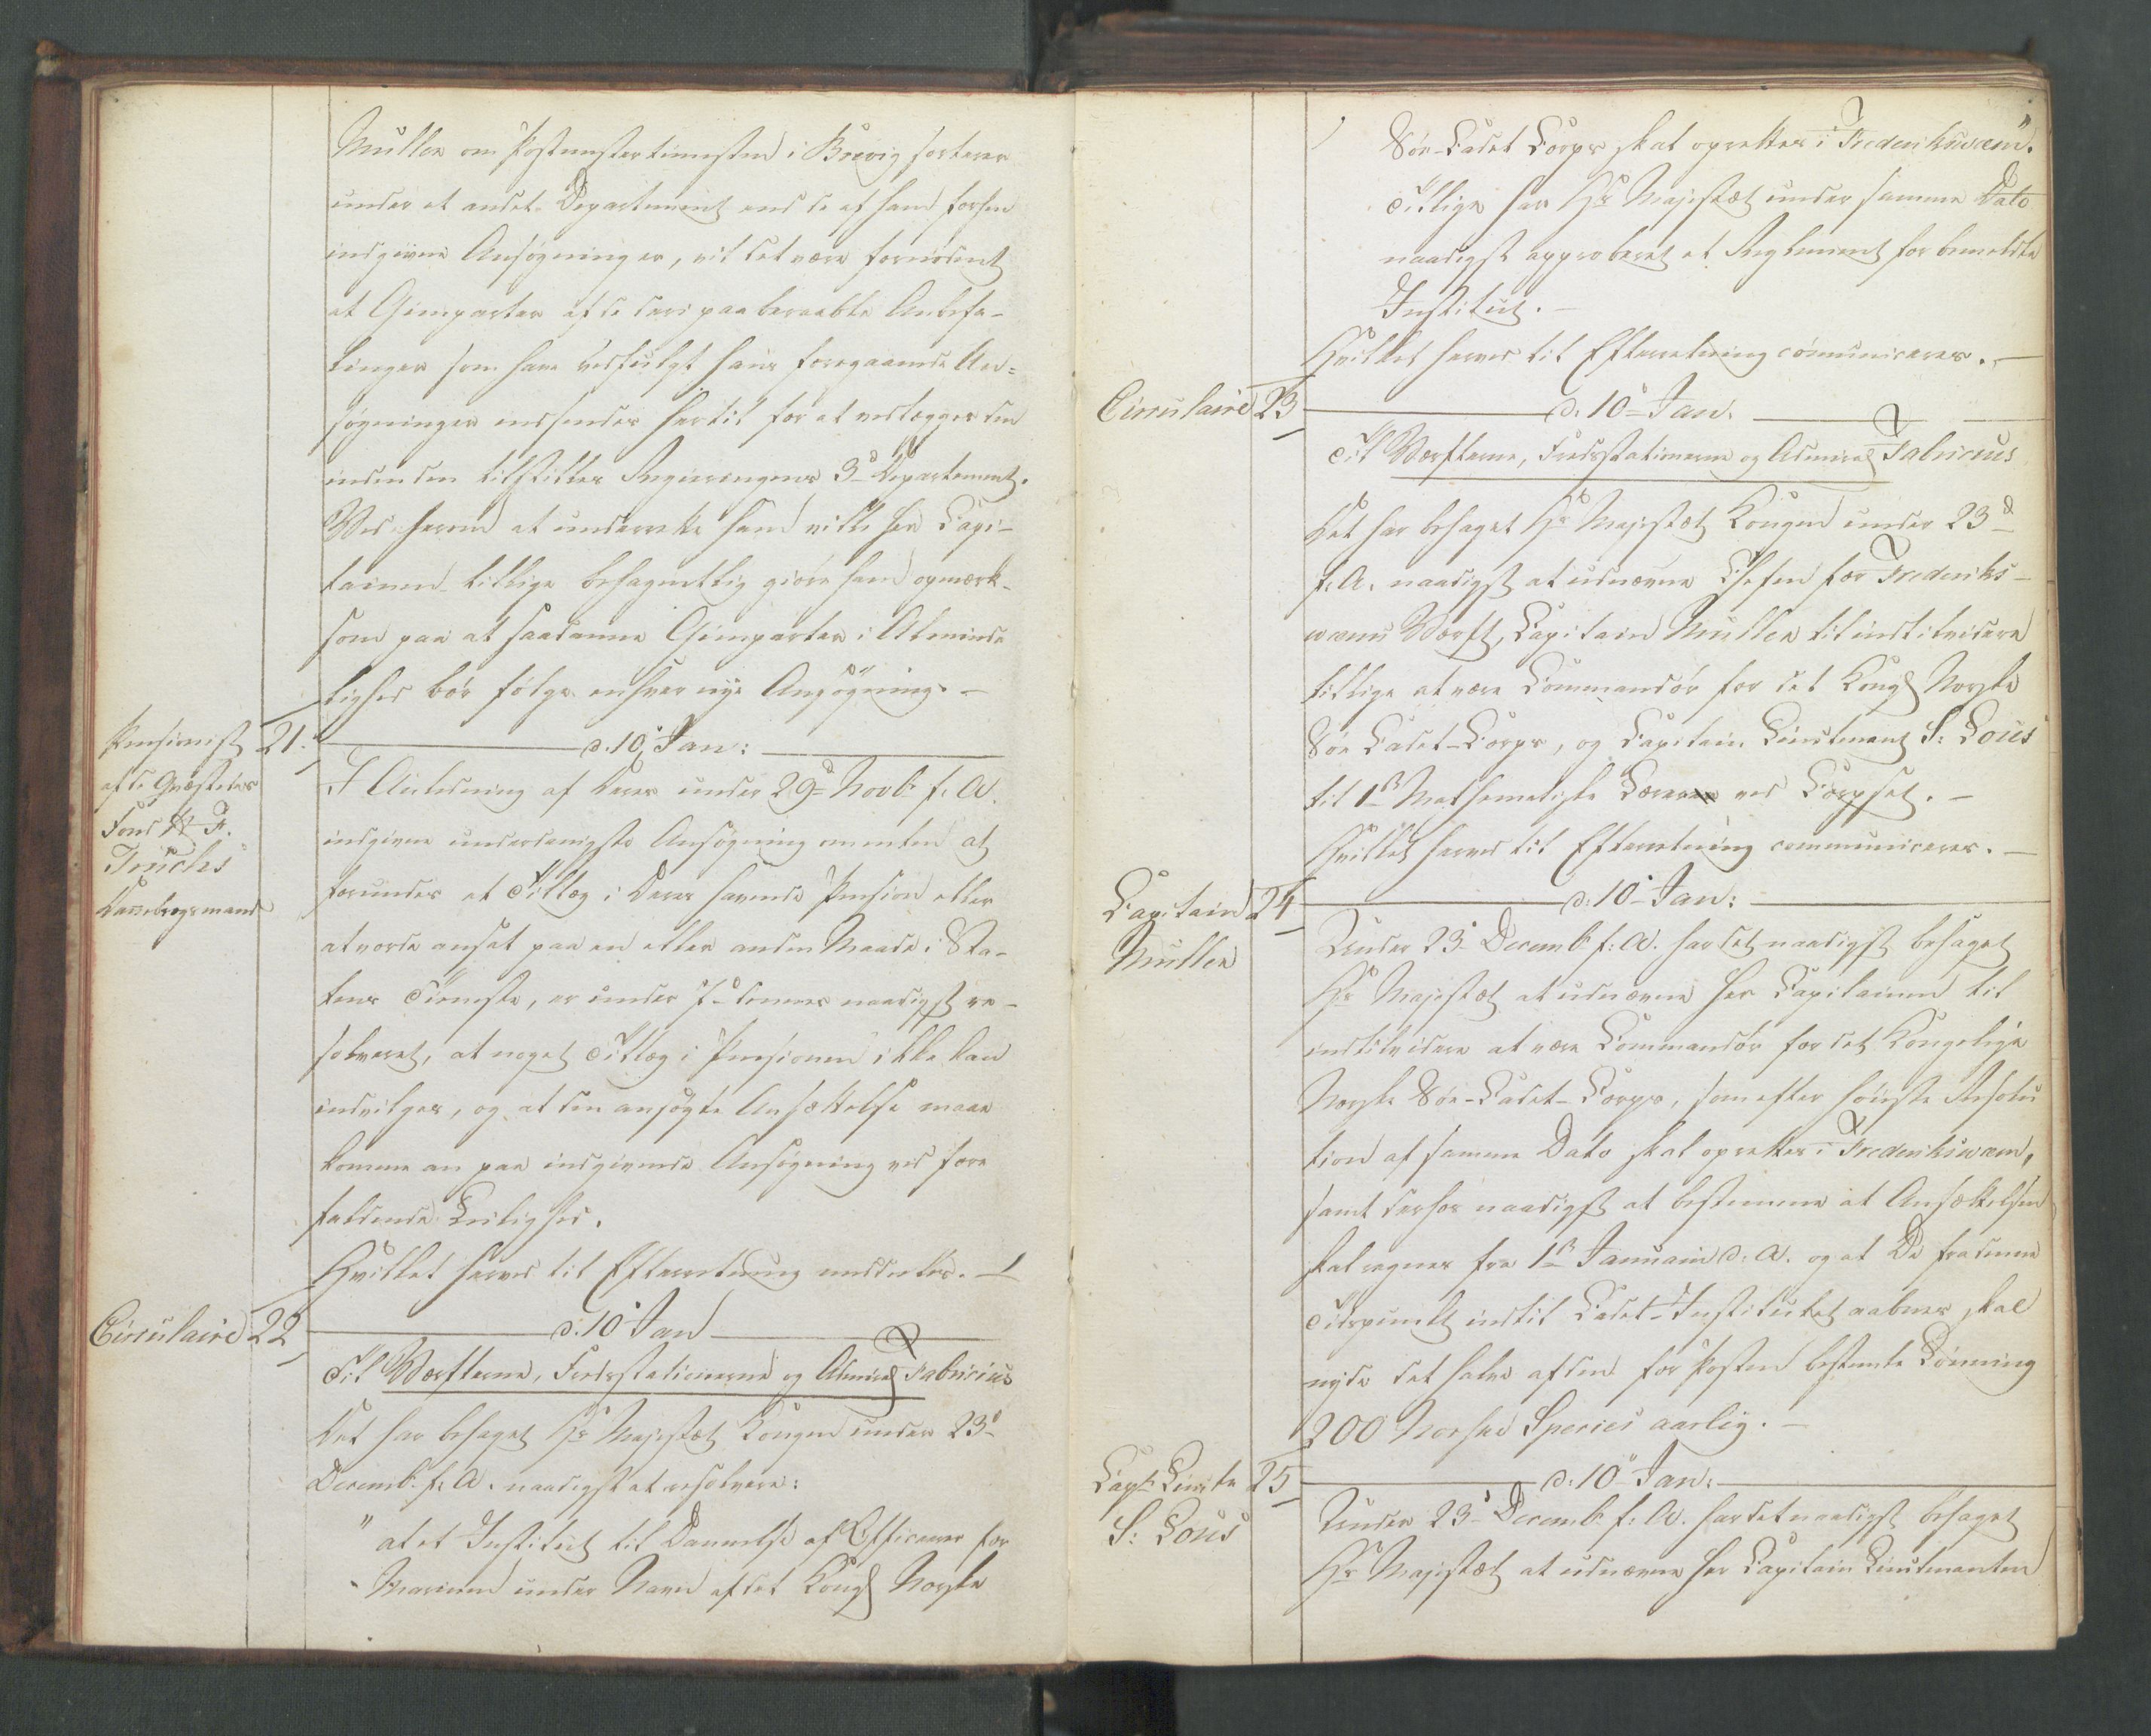 Müller om Postmestertienesten i Brevig sorterer
under et andet Departement end de af ham forhen
indgivne Ansøgninger, vil det være fornødent
at Gienparter af de deri paaberaabte Anbefa-
linger som have vedfulgt hans foregaaende An-
søgninger indsendes hertil for at vedlægges den
inden den tilstilles Regieringens 3d Departement.
Ved herom at underrette ham vilde Her Capi-
tainen tillige behageligt giøre ham opmærk-
som paa at saadanne Gienparter i Alminde
lighed bør følge enhver nye Ansøgning. -
Pensionist
af de Qvæstedes
Fond
F.
Truchs
Dannebrogsmand
21. d. 10 Jan:
I Anledning af Deres under 29d Novb. f. A.
indgivne underdanigste Ansøgning om enten at
forundes et Tillæg i Deres havende Pension eller
at vorde ansat paa en eller anden Maade i Sta-
tens Tieneste, er under 7d dennes naadigst re-
solveret, at noget Tillæg i Pensionen ikke kan
indvilges, og at den ansøgte Ansættelse maae
komme an paa indgivende Ansøgning ved fore
faldende Leilighed.
Hvilket herved til Efterretning meddeles. -
Circulaire 22 d. 10 Jan
Til Værfterne, Fredsstationerne og Admiral Fabricius
Det har behaget Hs Majestæt Kongen under 23d
Decemb. f. A. naadigst at resolvere:
" at et Institut til Dannelse af Officerer for
Marinen under Navn af det Kongl Norske
Søe-Cadet Corps skal oprettes i Frederiksværn."
Tillige har Hs Majestæt under samme Dato
naadigst approberet et Reglement for bemeldte
Institut. -
Hvilket herved til Efterretning comuniceres. -
Circulaire 23 d. 10 Jan.
Til Værfterne, Fredsstationerne og Admiral Fabricius
Det har behaget Hs Majestæt Kongen under 23d
f. A. naadigst at udnævne Chefen for Frederiks-
værns Værft, Capitain Müller til indtilvidere
tillige at være Commandør for det Kongl Norske
Søe Cadet-Corps, og Capitain Lieutenant S: Lous
til 1ste Mathematiske Lærer ved Corpset. -
Hvilket herved til Efterretning communiceres. -
Capitain
Müller
24 d. 10 Jan:
Under 23 Decemb f: A. har det naadigst behaget
Hs Majestæt at udnævne Her Capitainen til
indtilvidere at være Commandør for det Kongelige
Norske Søe-Cadet-Corps, som efter høieste Resolu
tion af samme Dato skal oprettes i Frederiksværn,
samt derhos naadigst at bestemme at Ansættelsen
skal regnes fra 1ste Januari d. A. og at De fra denne
Tidspunkt indtil Cadet-Institutet aabnes skal
nyde det halve af den for Posten bestemte Lønning
200 Norske Species aarlig. -
Capt: Lieute
S: Lous
25 d. 10 Jan:
Under 23 Decemb f: A. har det naadigst behaget
Hs Majestæt at udnævne Her Capitain Lieutenanten